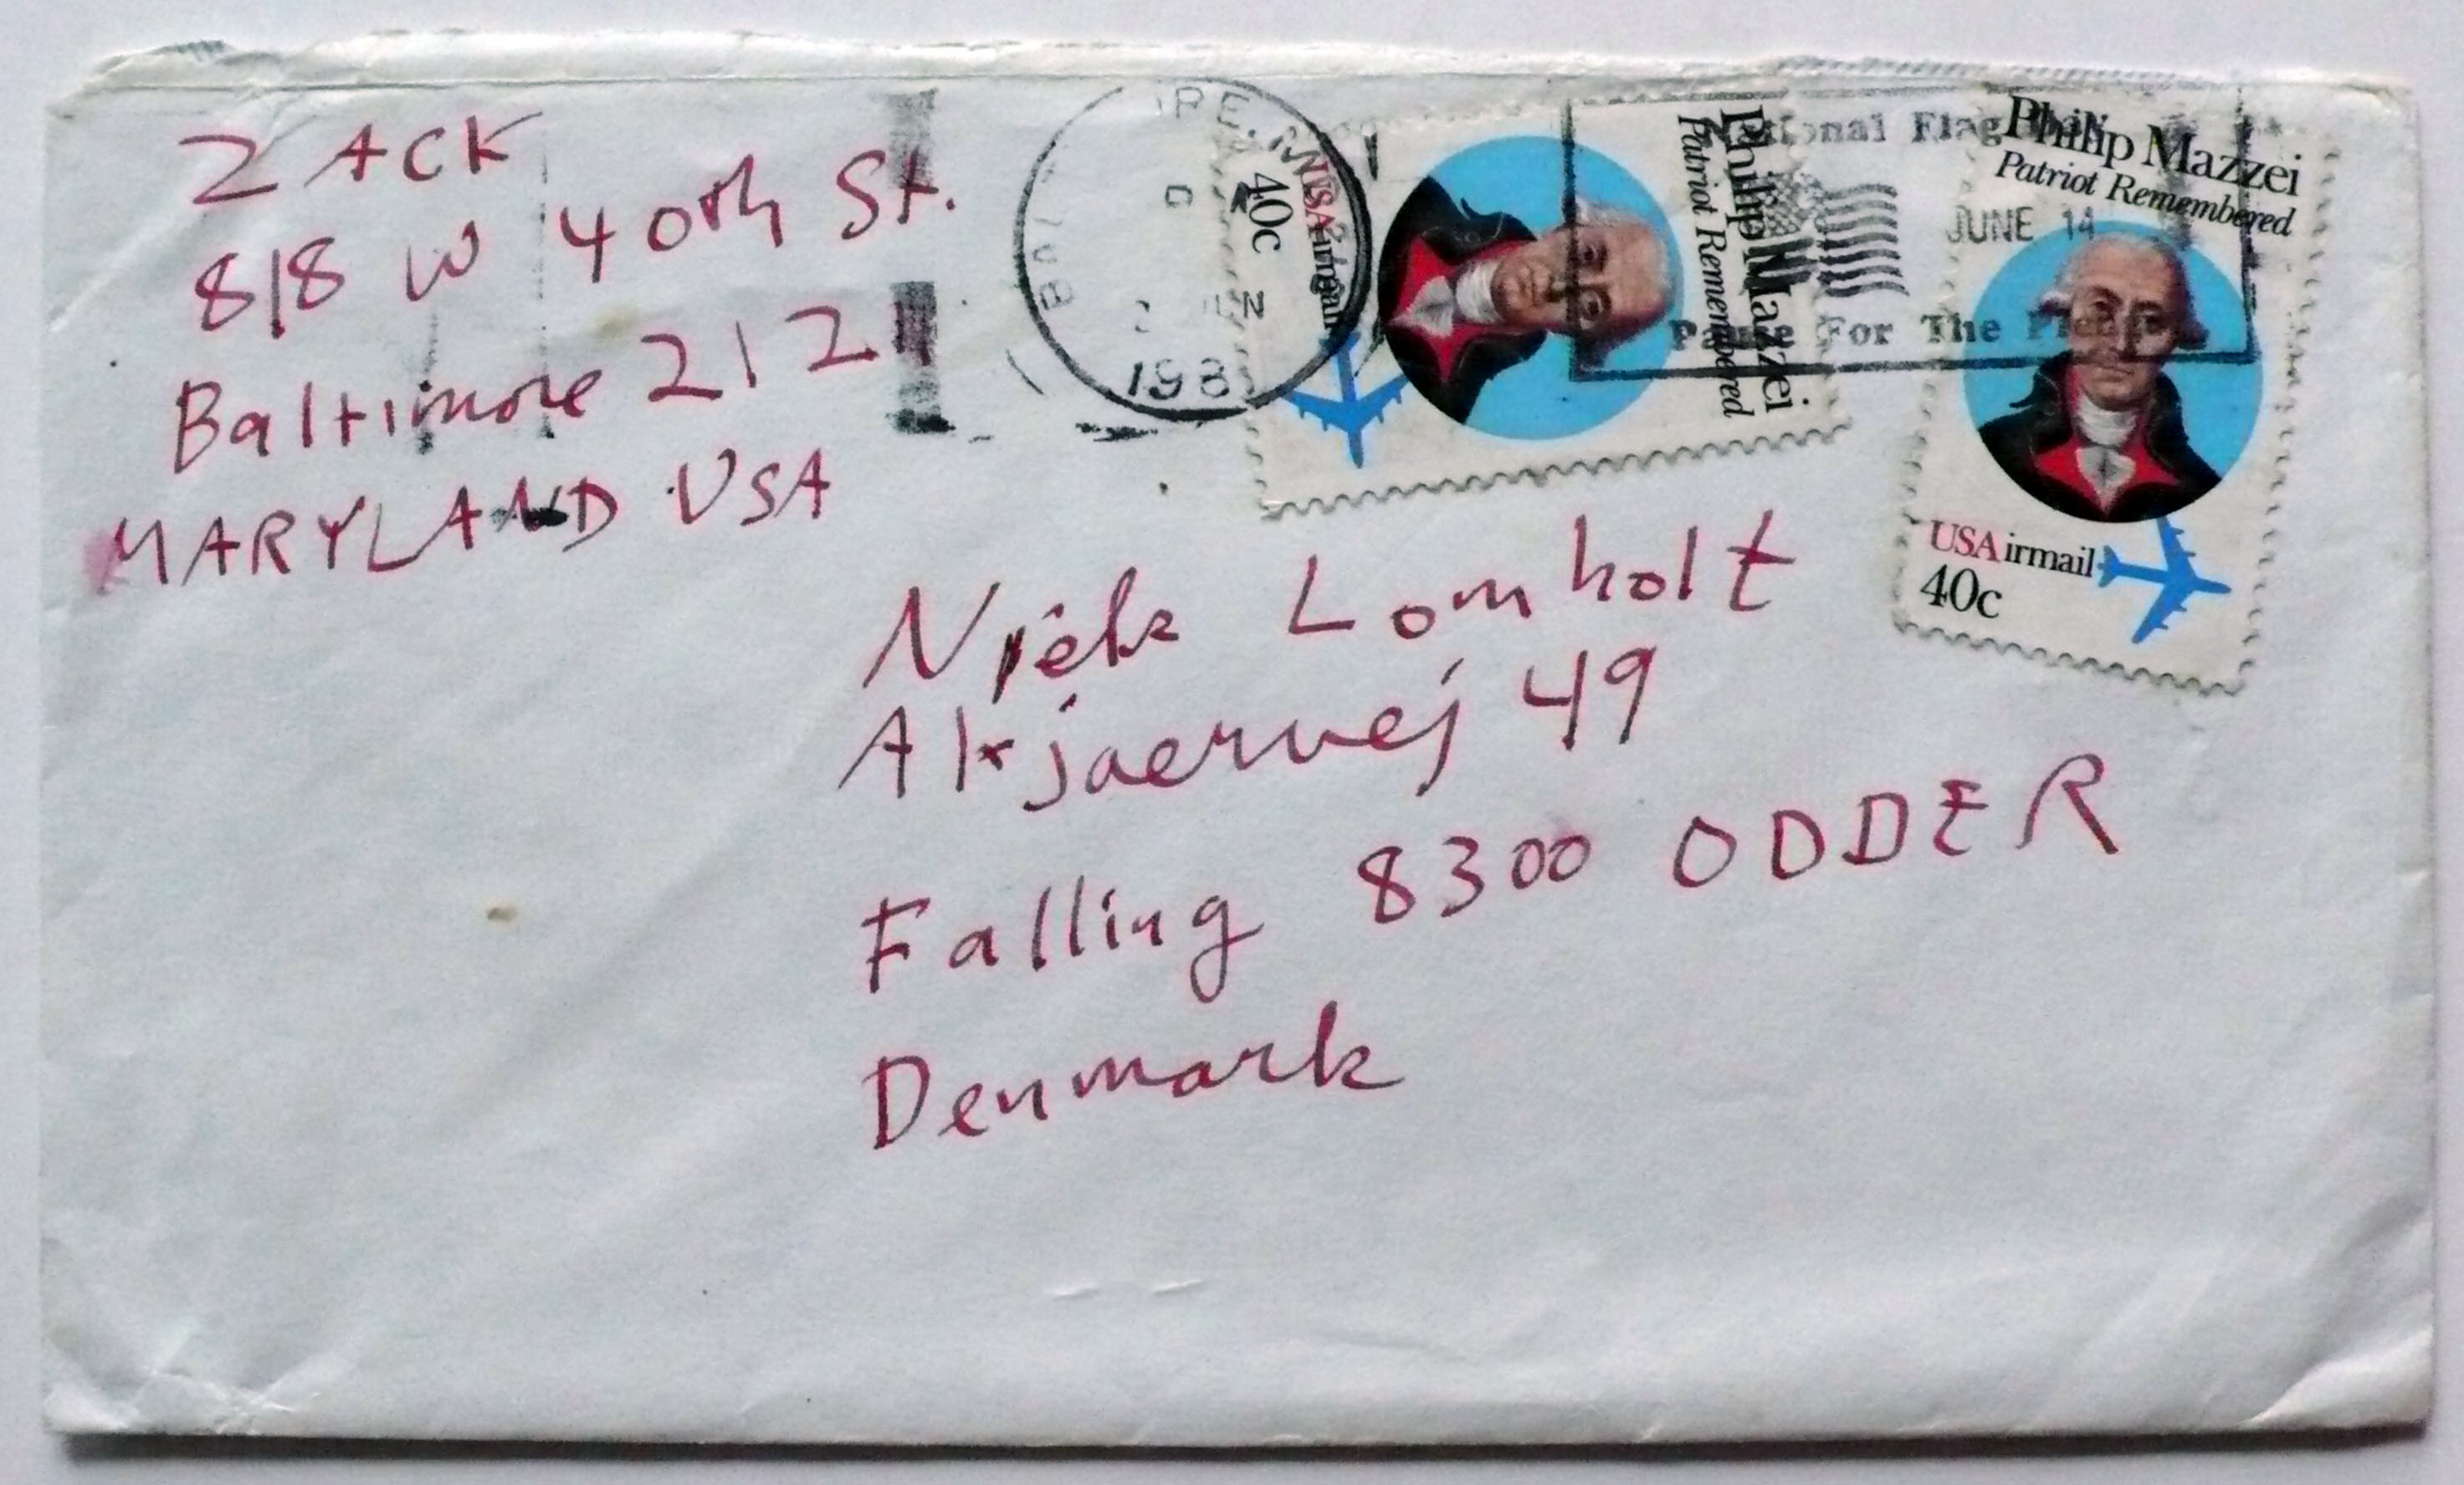 ZACK
818 W 40th St.
Baltimore 21211
MARYLAND USA
1981
USAirmail
40c
Philip Mazzei
Patriot Remembered
National Flag
JUNE 14
Pause For The
Philip Mazzei
Patriot Remembered
USAirmail
40c
Niels Lomholt
Akjaervej 49
Falling 8300 ODDER
Denmark